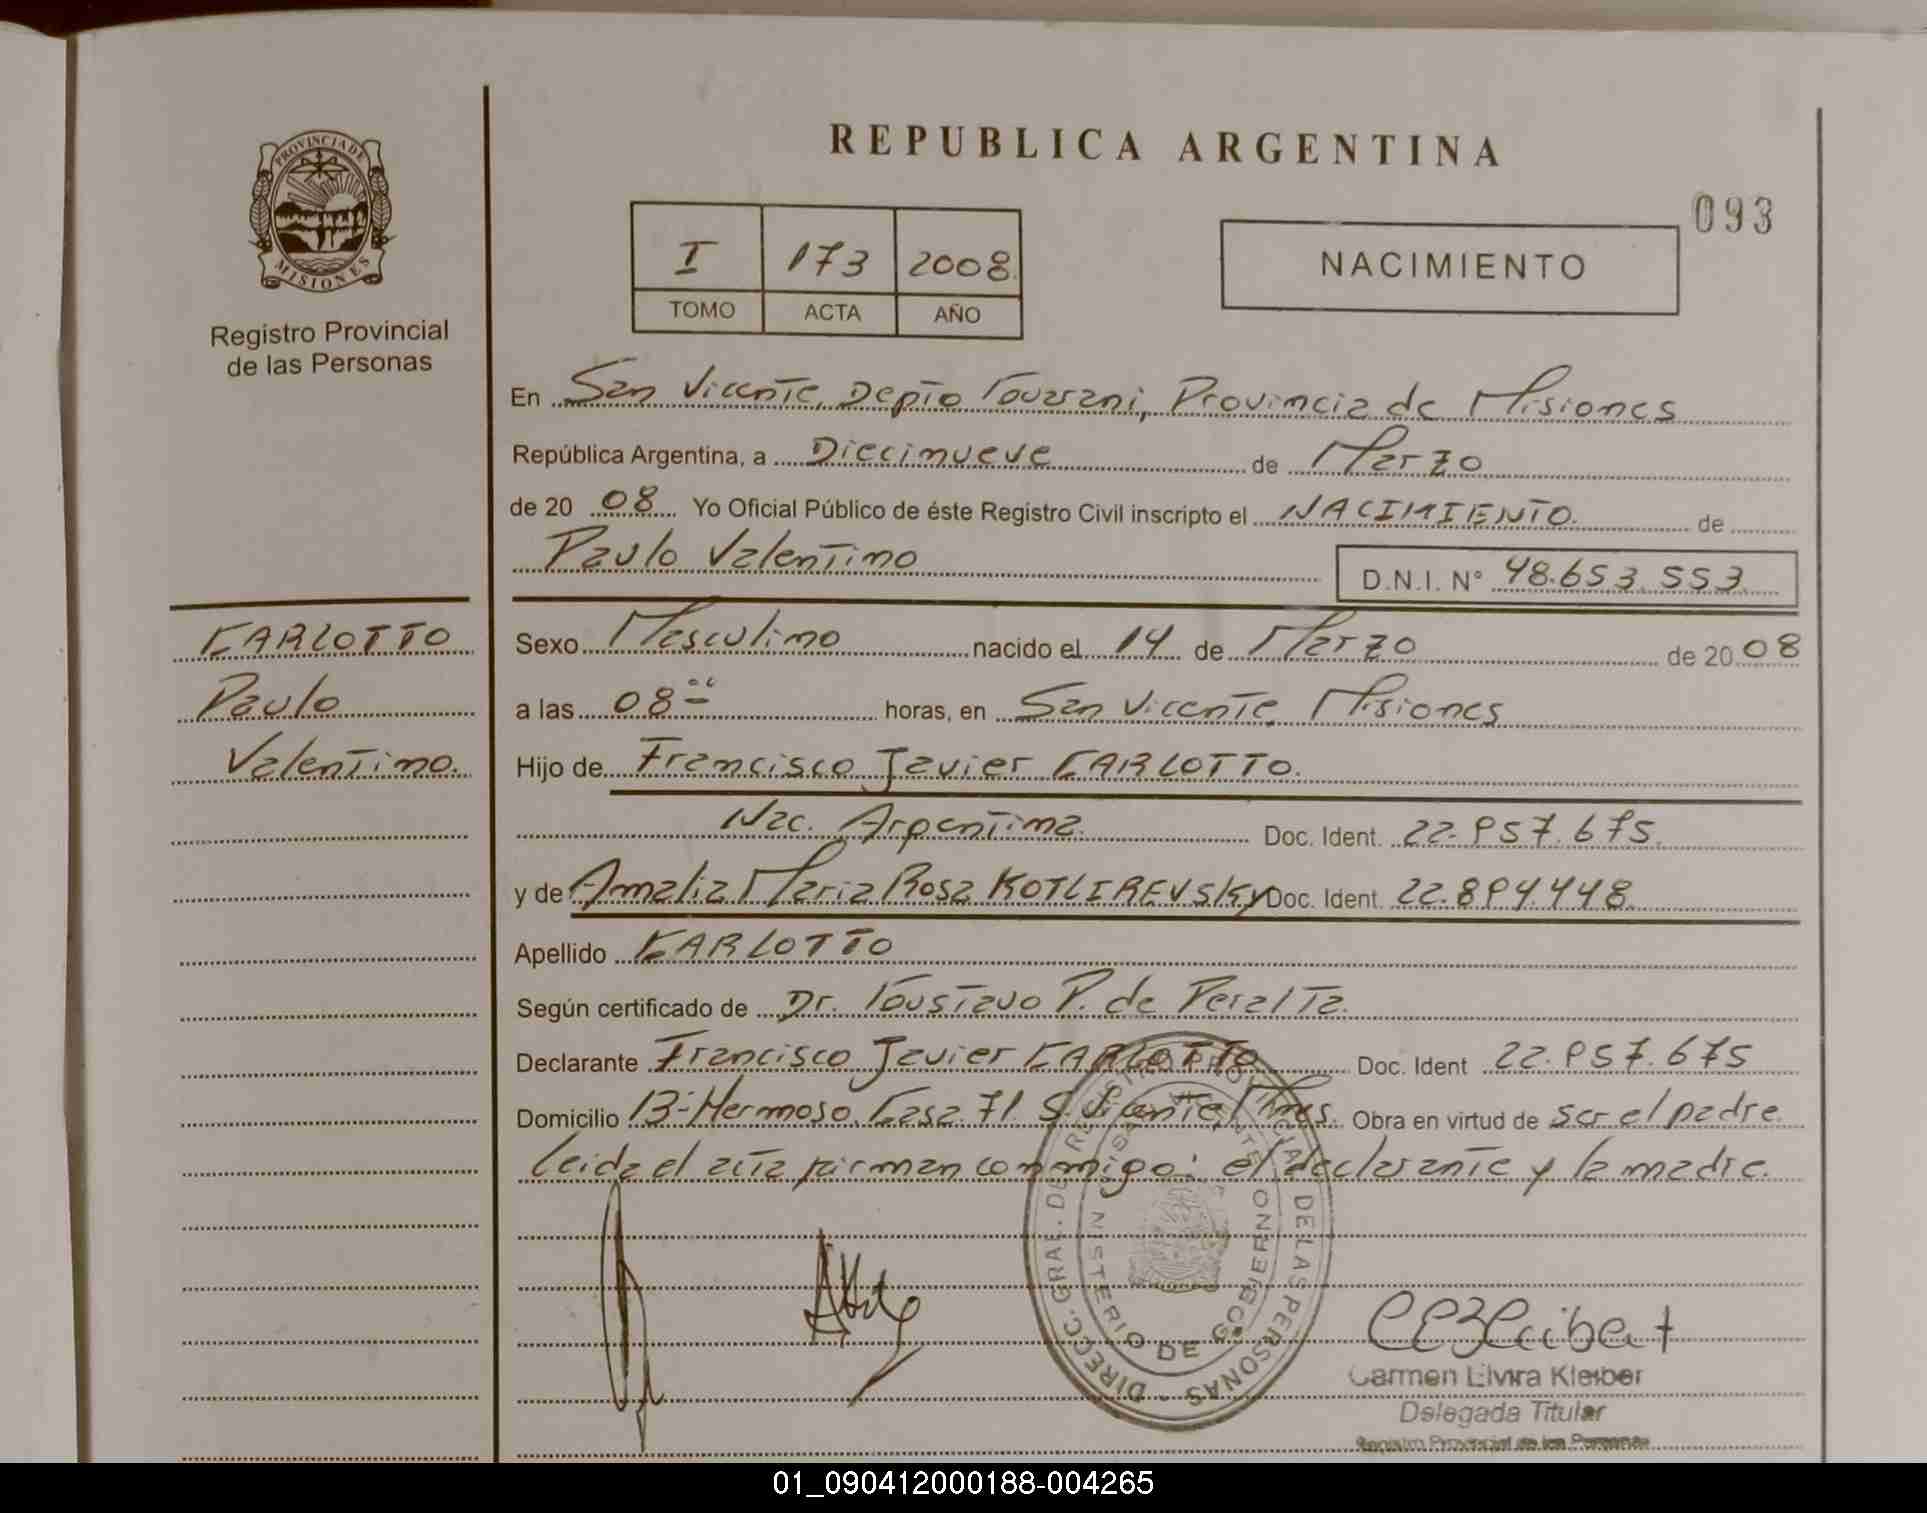 REPUBLICA ARGENTINA
093
PROVINCIA DE
MISIONES
Registro Provincial
de las Personas
I 173 2008
TOMO ACTA AÑO
NACIMIENTO
En San Vicente, Depto Guarani, Provincia de Misiones
República Argentina, a Diecinueve de Marzo
de 20 08 Yo Oficial Público de éste Registro Civil inscripto el NACIMIENTO. de
Paulo Valentino
D.N.I. N° 48.653.553.
CARLOTTO
Paulo
Valentino.
Sexo Masculino nacido el 14 de Marzo de 20 08
a las 08 horas, en San Vicente, Misiones
Hijo de Francisco Javier CARLOTTO.
Nac. Argentina. Doc. Ident. 22.957.675.
y de Amalia Maria Rosa KOTLIREVSKY Doc. Ident. 22.894.448.
Apellido CARLOTTO
Según certificado de Dr. Gustavo P. de Peralta.
Declarante Francisco Javier CARLOTTO Doc. Ident 22.957.675
Domicilio B- Hermoso, Casa 71. S. Vicente, Mnes. Obra en virtud de ser el padre
leida el acta firman conmigo: el declarante y la madre.
DIRECC. GRAL. DE REGISTRO PROVINCIAL DE LAS PERSONAS
SAN VICENTE
MINISTERIO DE GOBIERNO
Carmen Elvira Kleiber
Delegada Titular
Registro Provincial de las Personas
01_090412000188-004265